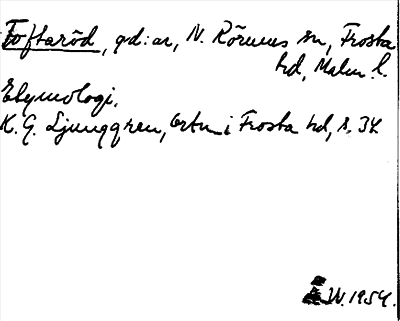 Toftaröd, gd:ar, N. Rörums sn, Frosta
hd, Malm. l.
Etymologi.
K. G. Ljunggren, Ortn i Frosta hd, s. 34
W. 1954.